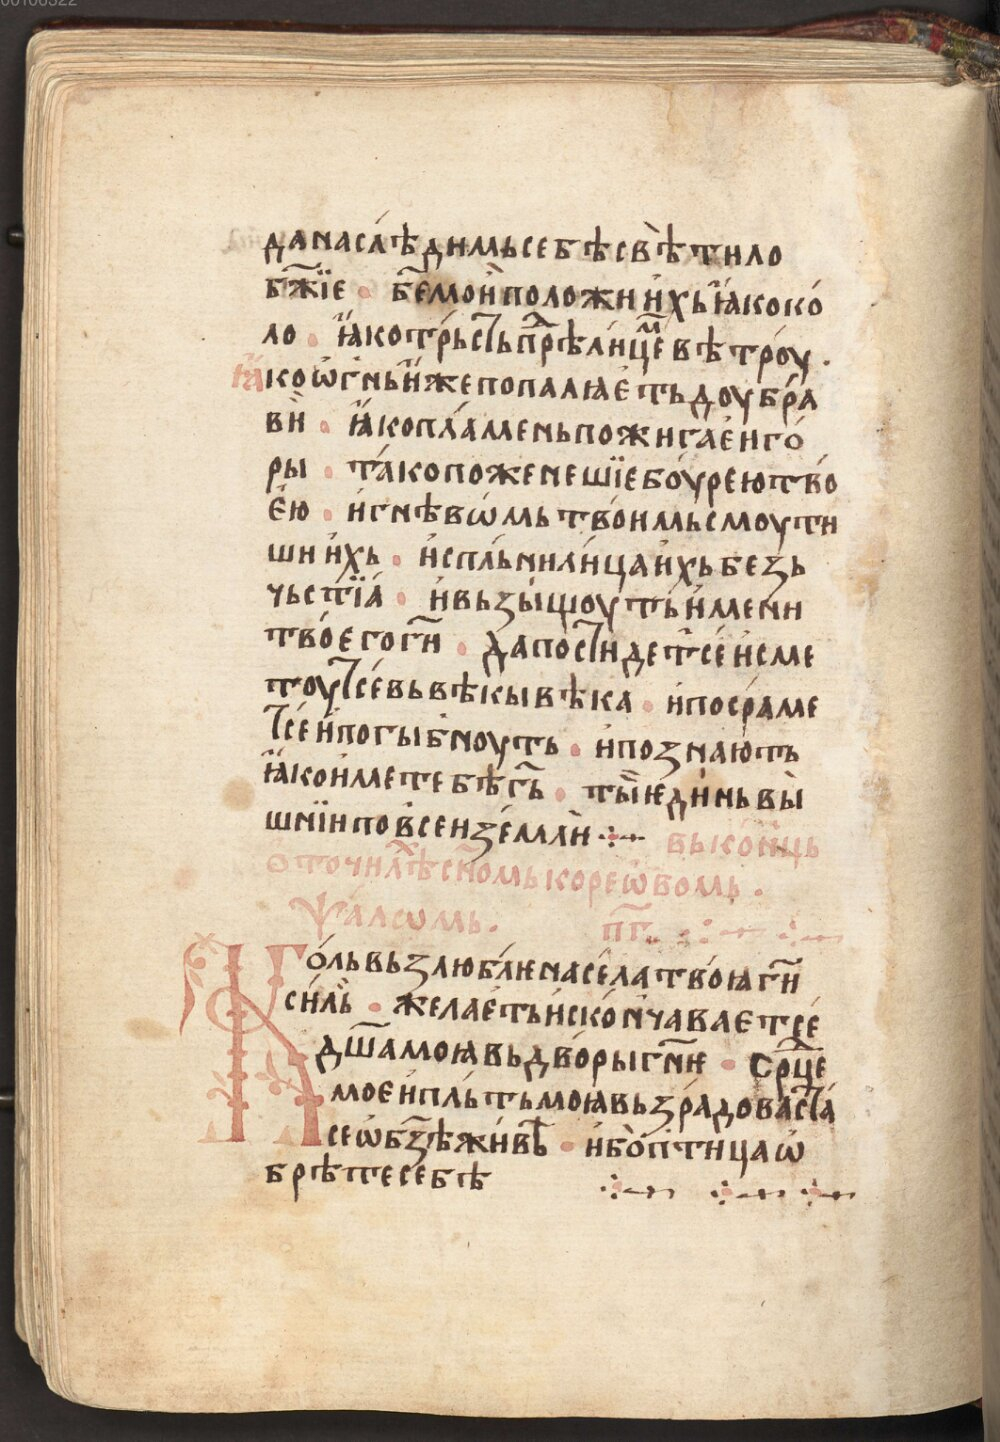 да наслѣдимь себѣ свѣтило
бж҃їе · бе҃ мои положи ихь ꙗко ко
ло · ꙗко трьсть прѣⷣ лицеⷨ вѣтроу ·
ꙗко ѡгнь иже попалꙗеть доубра
ви · ꙗко пламень пожигаеи го
ры · тако поженеши їе боурею тво
ею · и гнѣвѡмь твоимь смоути
ши ихь · испльни лица ихь безь
чьстїа · и вьзыщоуть имени
твоего ги҃ · да постидетсе и сме
тоутсе вь вѣкы вѣка · и посраме
тсе и погыбноуть · и познають
ꙗко име тебѣ гь҃ · ты ѥдинь вы
шнїи по всеи земли вь конць
ѡ точилѣⷯ сн҃омь кореѡвомь ·
ѱалѡмь · пг҃
Коль вьзлюблѥна села твоꙗ ги҃
силь · желаеть и скончаваетсе
дш҃а моꙗ вь дворы гн҃ѥ · срⷣце
мое и пльть моꙗ вьзрадовастa
се ѡ бз҃ѣ живѣ · ибо птица ѡ
брѣте себѣ